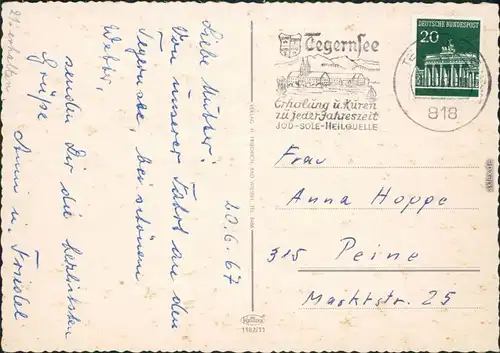 Erhalten
20.6.67
Liebe Mutter!
Von unserer Fahrt an den
Tegernsee, bei schönem
Wetter,
senden Dir die herzlichsten
Grüße
Anni u. Friedel
Tegernsee
Erholung u. Kuren
zu jeder Jahreszeit
JOD-SOLE-HEILQUELLE
DEUTSCHE BUNDESPOST
20
818
Frau
Anna Hoppe
315 Peine
Marktstr. 25
1102/11